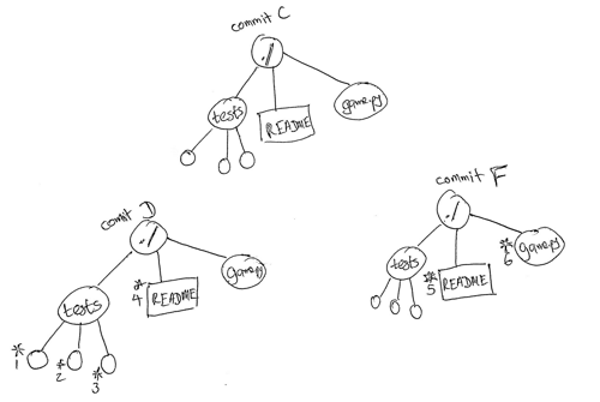 commit C
./
tests
README
game.py
comit D
./
tests
*4
README
game.py
*1
*2
*3
commit F
./
tests
*5
README
*6
game.py